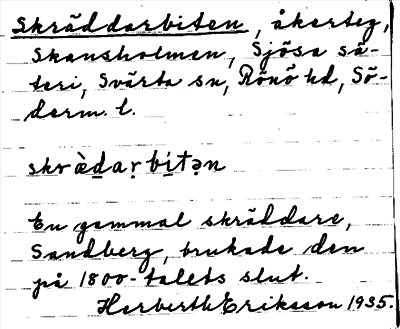 Skräddarbiten, åkerteg,
Skansholmen, Sjösa sä-
teri, Svärta sn, Rönö hd, Sö-
derm. l.
skrä̀d̲aṛbi̲tə̣n
En gammal skräddare,
Sandberg, brukade den
på 1800-talets slut.
Herberth Eriksson 1935.